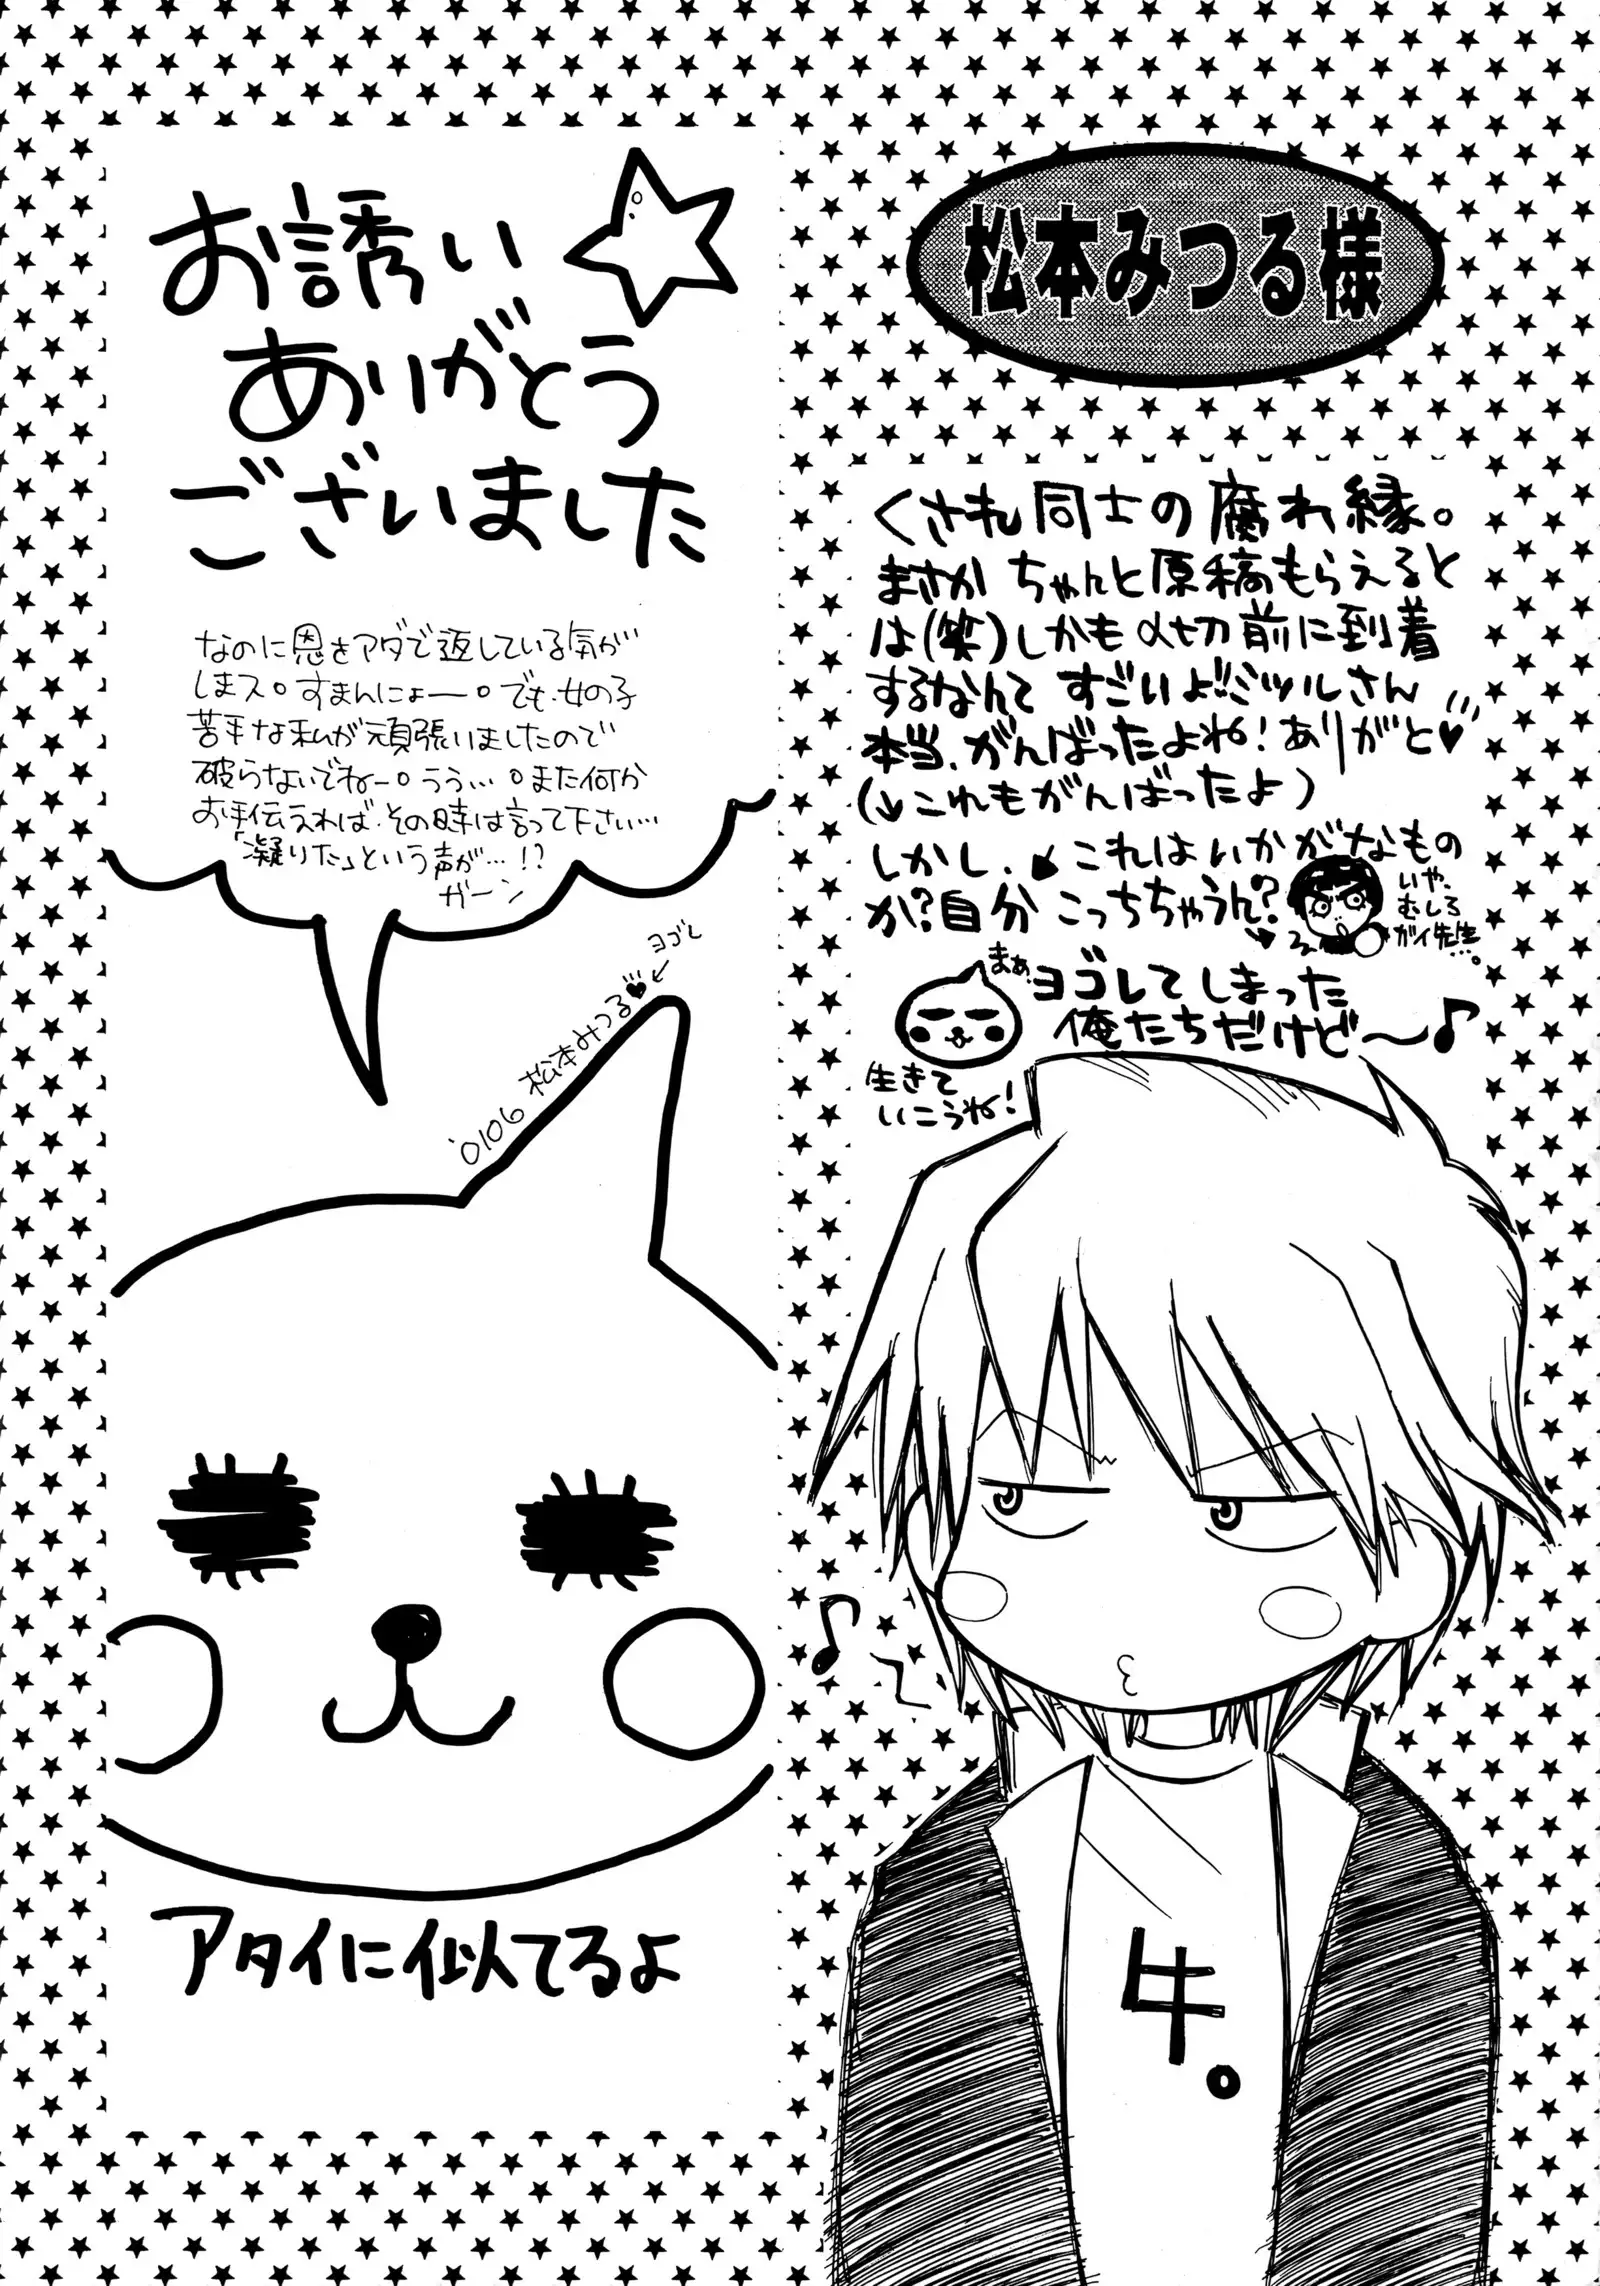 松本みつる様
くされ同士の腐れ縁。
まさか ちゃんと原稿もらえると
は(笑)しかも〆切前に到着
するなんて すごいよ!!ミツルさん
本当、がんばったよね!ありがと♥
(↓これもがんばったよ)
しかし、これはいかがなもの
か?自分 こっちちゃうん?
いや、
むしろ
ガイ先生…。
まぁ、ヨゴレてしまった
俺たちだけど〜♪
生きて
いこうね!
牛。
お誘い
ありがとう
ございました
なのに恩をアダで返している気が
しまス。すまんにょー。でも、女の子
苦手な私が頑張りましたので
破らないでねー。うう…。また何か
お手伝えれば、その時は言って下さい…
「凝りた」という声が…!?
ガーン
ヨゴレ
'0106 松本みつる♥
アタイに似てるよ